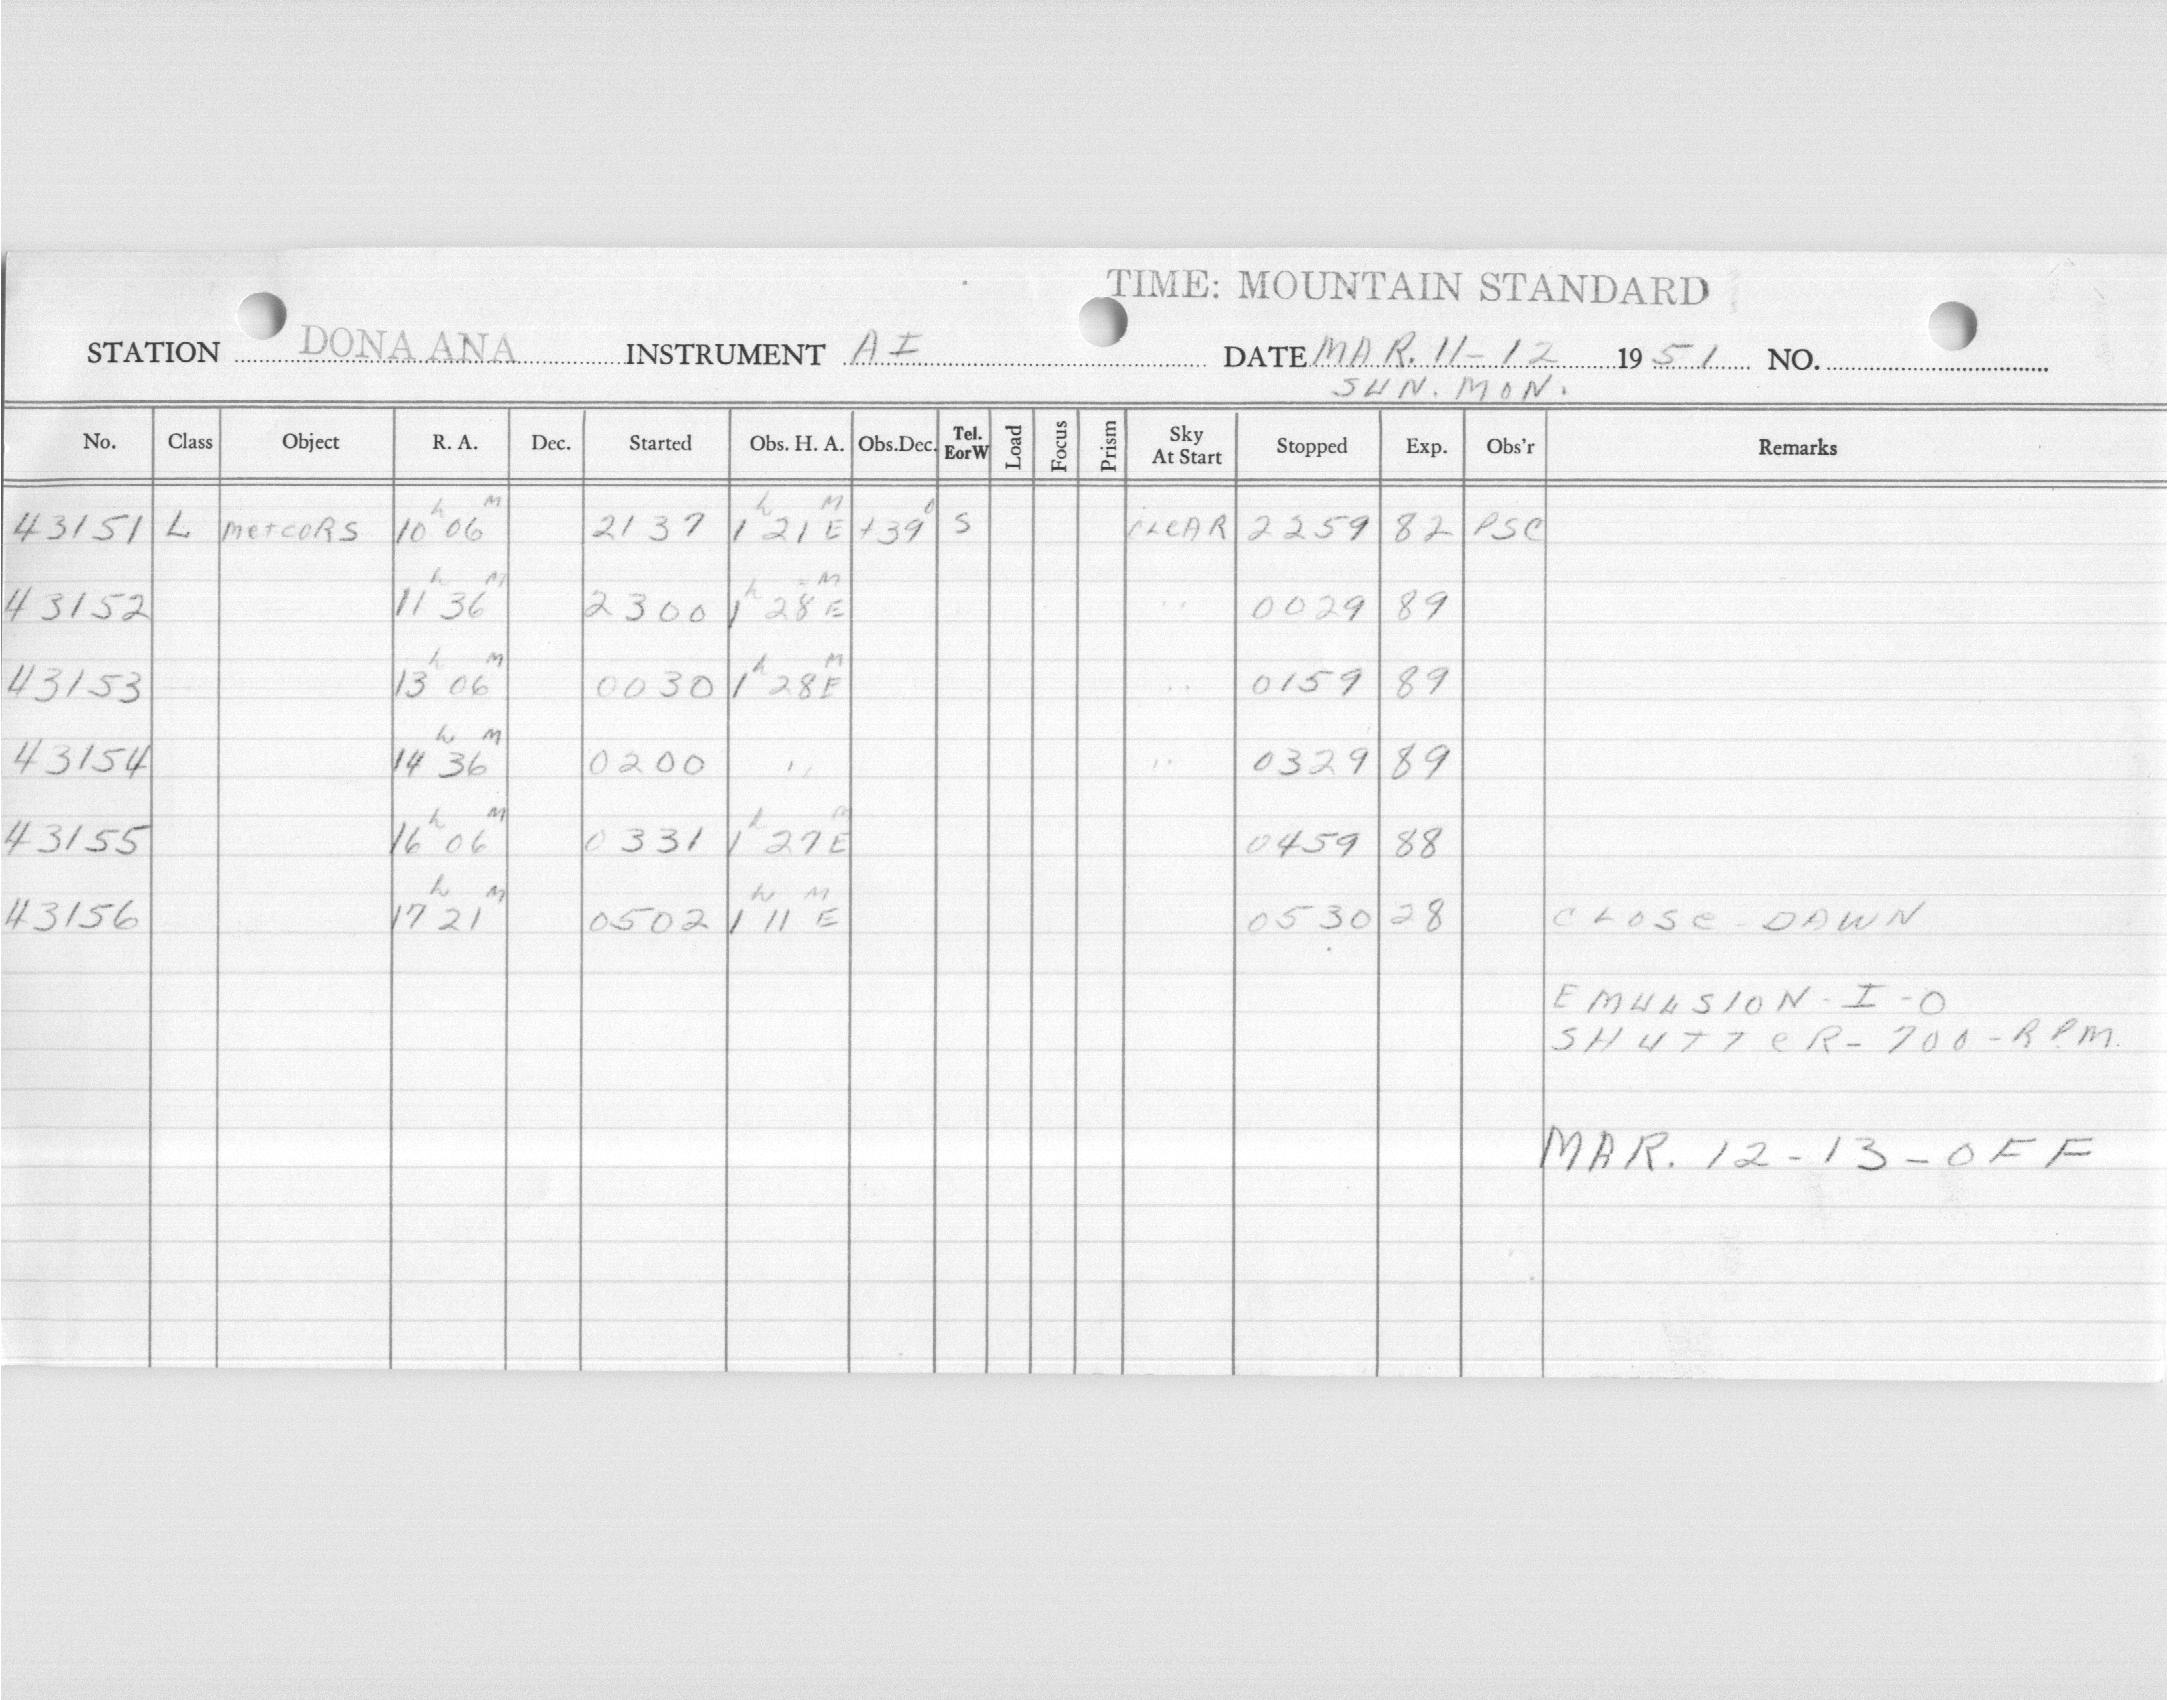 TIME: MOUNTAIN STANDARD
STATION DONA ANA INSTRUMENT AI DATE MAR. 11-12 1951 NO.
SUN. MON.
No. Class Object R. A. Dec. Started Obs. H. A. Obs.Dec. Tel. EorW Load Focus Prism Sky At Start Stopped Exp. Obs'r Remarks
43151 L meteoRS 10h 06M 2137 1h 21M E +39° S CLEAR 2259 82 PSC
43152 11h 36M 2300 1h 28M E " 0029 89
43153 13h 06M 0030 1h 28M E " 0159 89
43154 14h 36M 0200 " " 0329 89
43155 16h 06M 0331 1h 27M E 0459 88
43156 17h 21M 0502 1h 11M E 0530 28 CLOSe - DAWN
EMULSION - I - O
SHUTTeR - 700 - RPM.
MAR. 12 - 13 - OFF